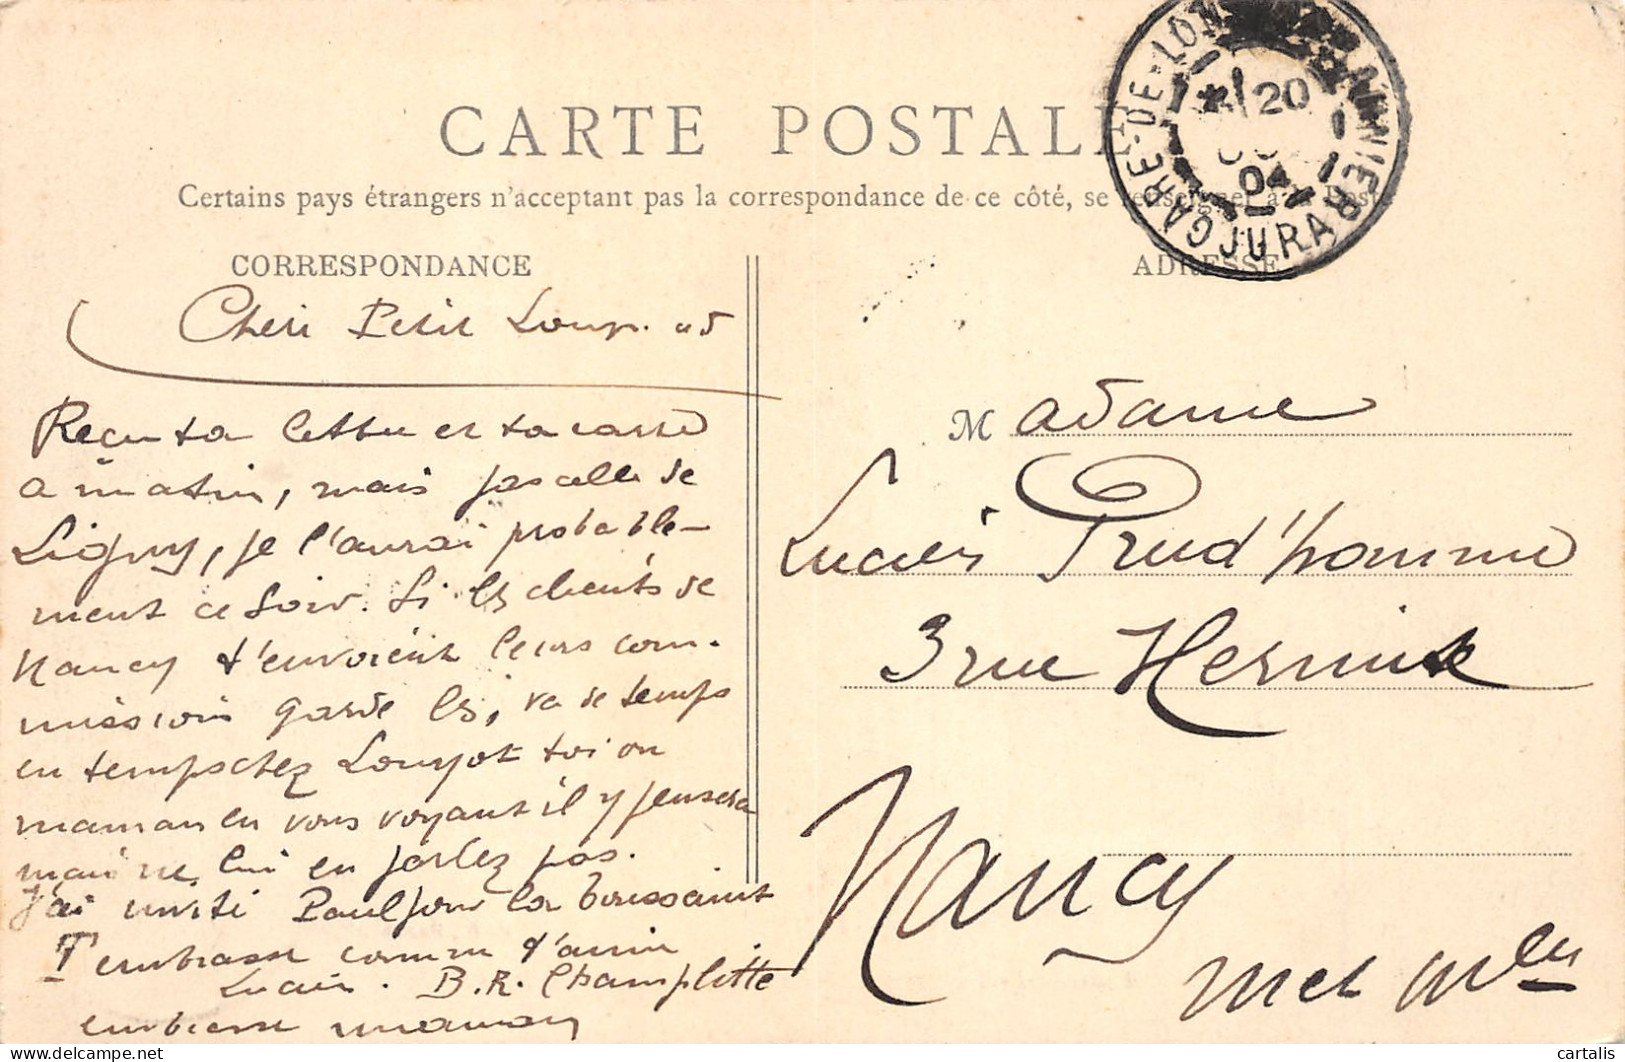 CARTE POSTALE
Certains pays étrangers n'acceptant pas la correspondance de ce côté, se renseigner à la Poste
CORRESPONDANCE
ADRESSE
GARE-DE-LONS
JURA
20
04
Cheri Petit Loup.
Reçu ta lettre et ta carte
matin, mais pas celle de
Ligny, je l'aurai probable-
ment ce soir. Si les clients de
Nancy t'envoient leurs com-
mission garde les, va de temps
en temps chez Louyot toi ou
maman en vous voyant il y pensera
mais ne lui en parlez pas.
J'ai invité Paul pour la toussaint
T'embrasse comme t'aime
Lucien. B.R. Champlitte
embrasse maman
Madame
Lucien Prud'homme
3 rue
Nancy
Met Mlle
cartalis